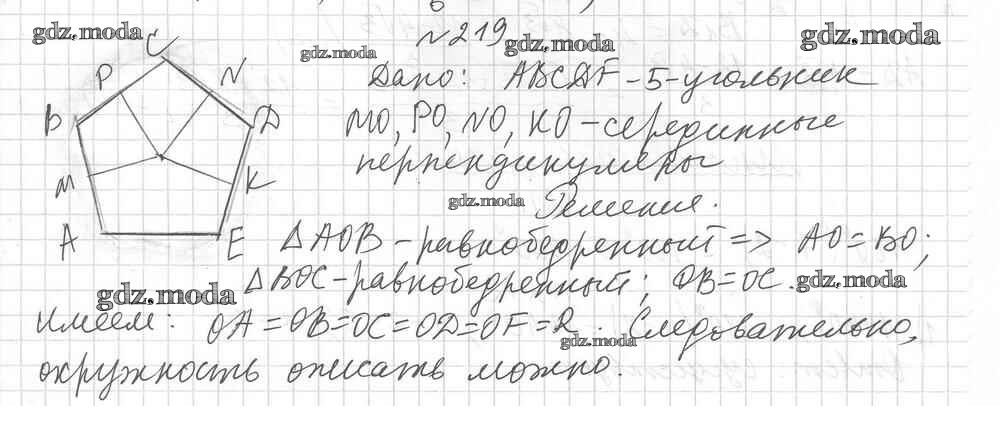 gdz.moda
gdz.moda
gdz.moda
gdz.moda
N219
C
P
N
B
D
M
K
A
E
Дано: ABCDF - 5-угольник
MO, PO, NO, KO - серединные
перпендикуляры
gdz.moda
Решения.
ΔAOB - равнобедренный => AO = BO;
ΔBOC - равнобедренный; OB = OC.
gdz.moda
gdz.moda
Имеем: OA = OB = OC = OD = OF = R. Следовательно,
gdz.moda
окружность описать можно.